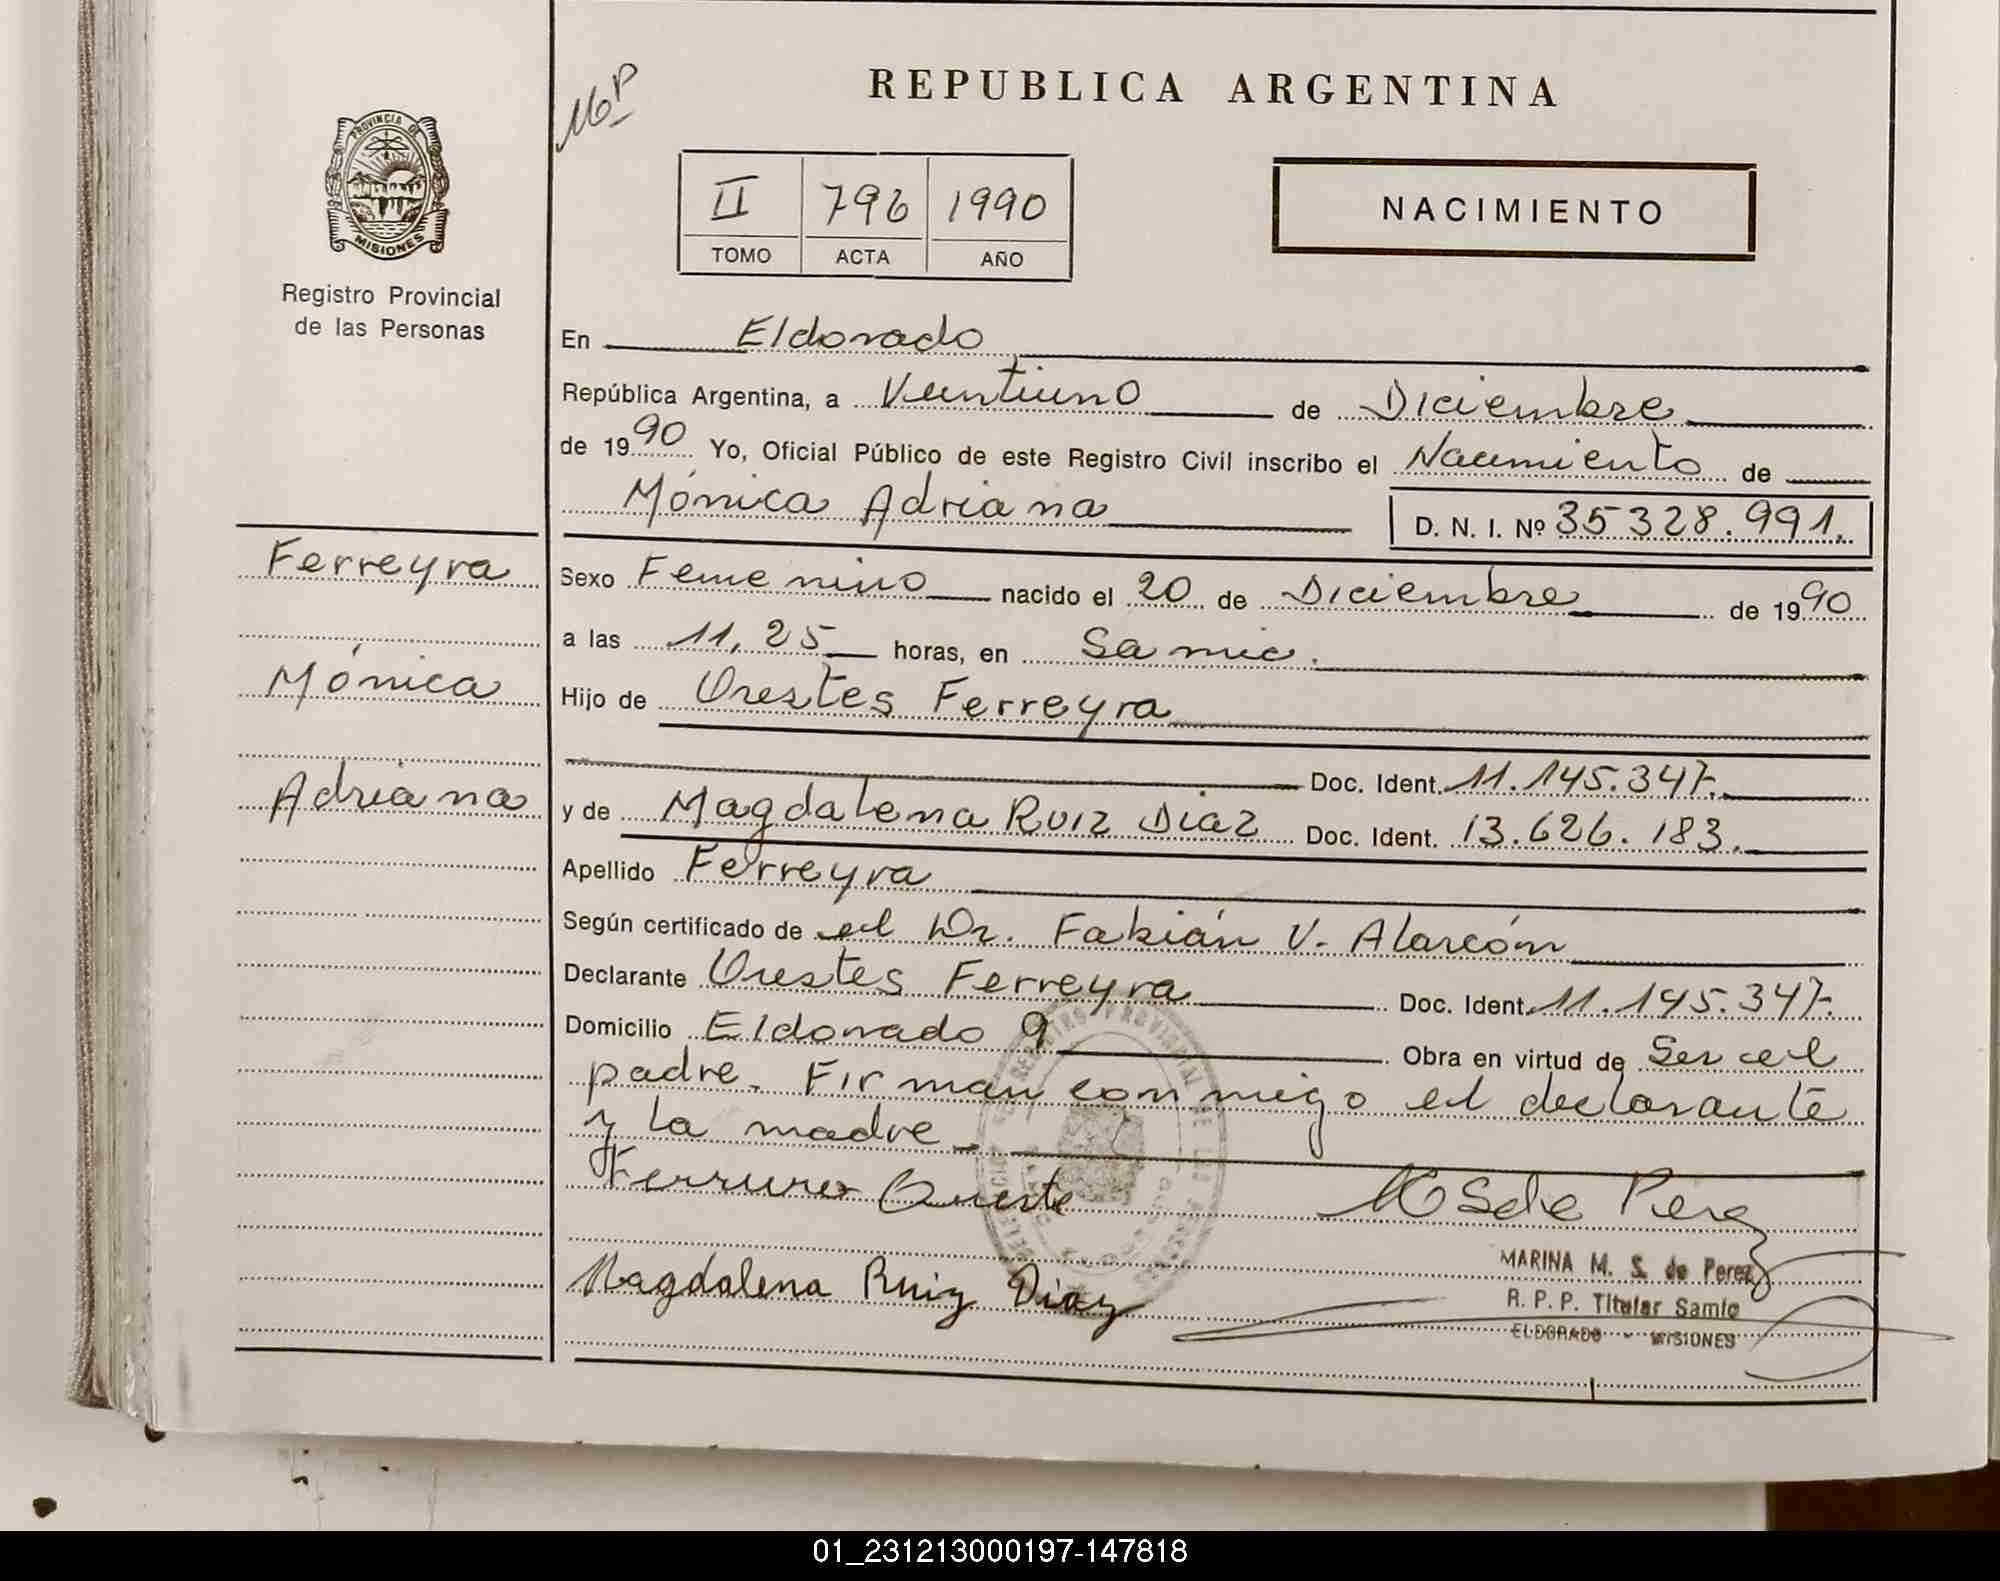 REPUBLICA ARGENTINA
PROVINCIA DE
MISIONES
Registro Provincial
de las Personas
II 796 1990
TOMO ACTA AÑO
NACIMIENTO
En Eldorado
República Argentina, a Veintiuno de Diciembre
de 1990 Yo, Oficial Público de este Registro Civil inscribo el Nacimiento de
Mónica Adriana D. N. I. Nº 35328.991.
Ferreyra
Mónica
Adriana
Sexo Femenino nacido el 20 de Diciembre de 1990
a las 11,25 horas, en Samic.
Hijo de Orestes Ferreyra
Doc. Ident. 11.145.347.
y de Magdalena Ruiz Diaz Doc. Ident. 13.626.183.
Apellido Ferreyra
Según certificado de el Dr. Fabián V. Alarcón
Declarante Orestes Ferreyra Doc. Ident. 11.145.347.
Domicilio Eldorado 9 Obra en virtud de Ser el
padre. Firman conmigo el declarante
y la madre.
MSde Perez
Magdalena Ruiz Diaz
MARINA M. S. de Perez
R. P. P. Titular Samic
ELDORADO - MISIONES
01_231213000197-147818